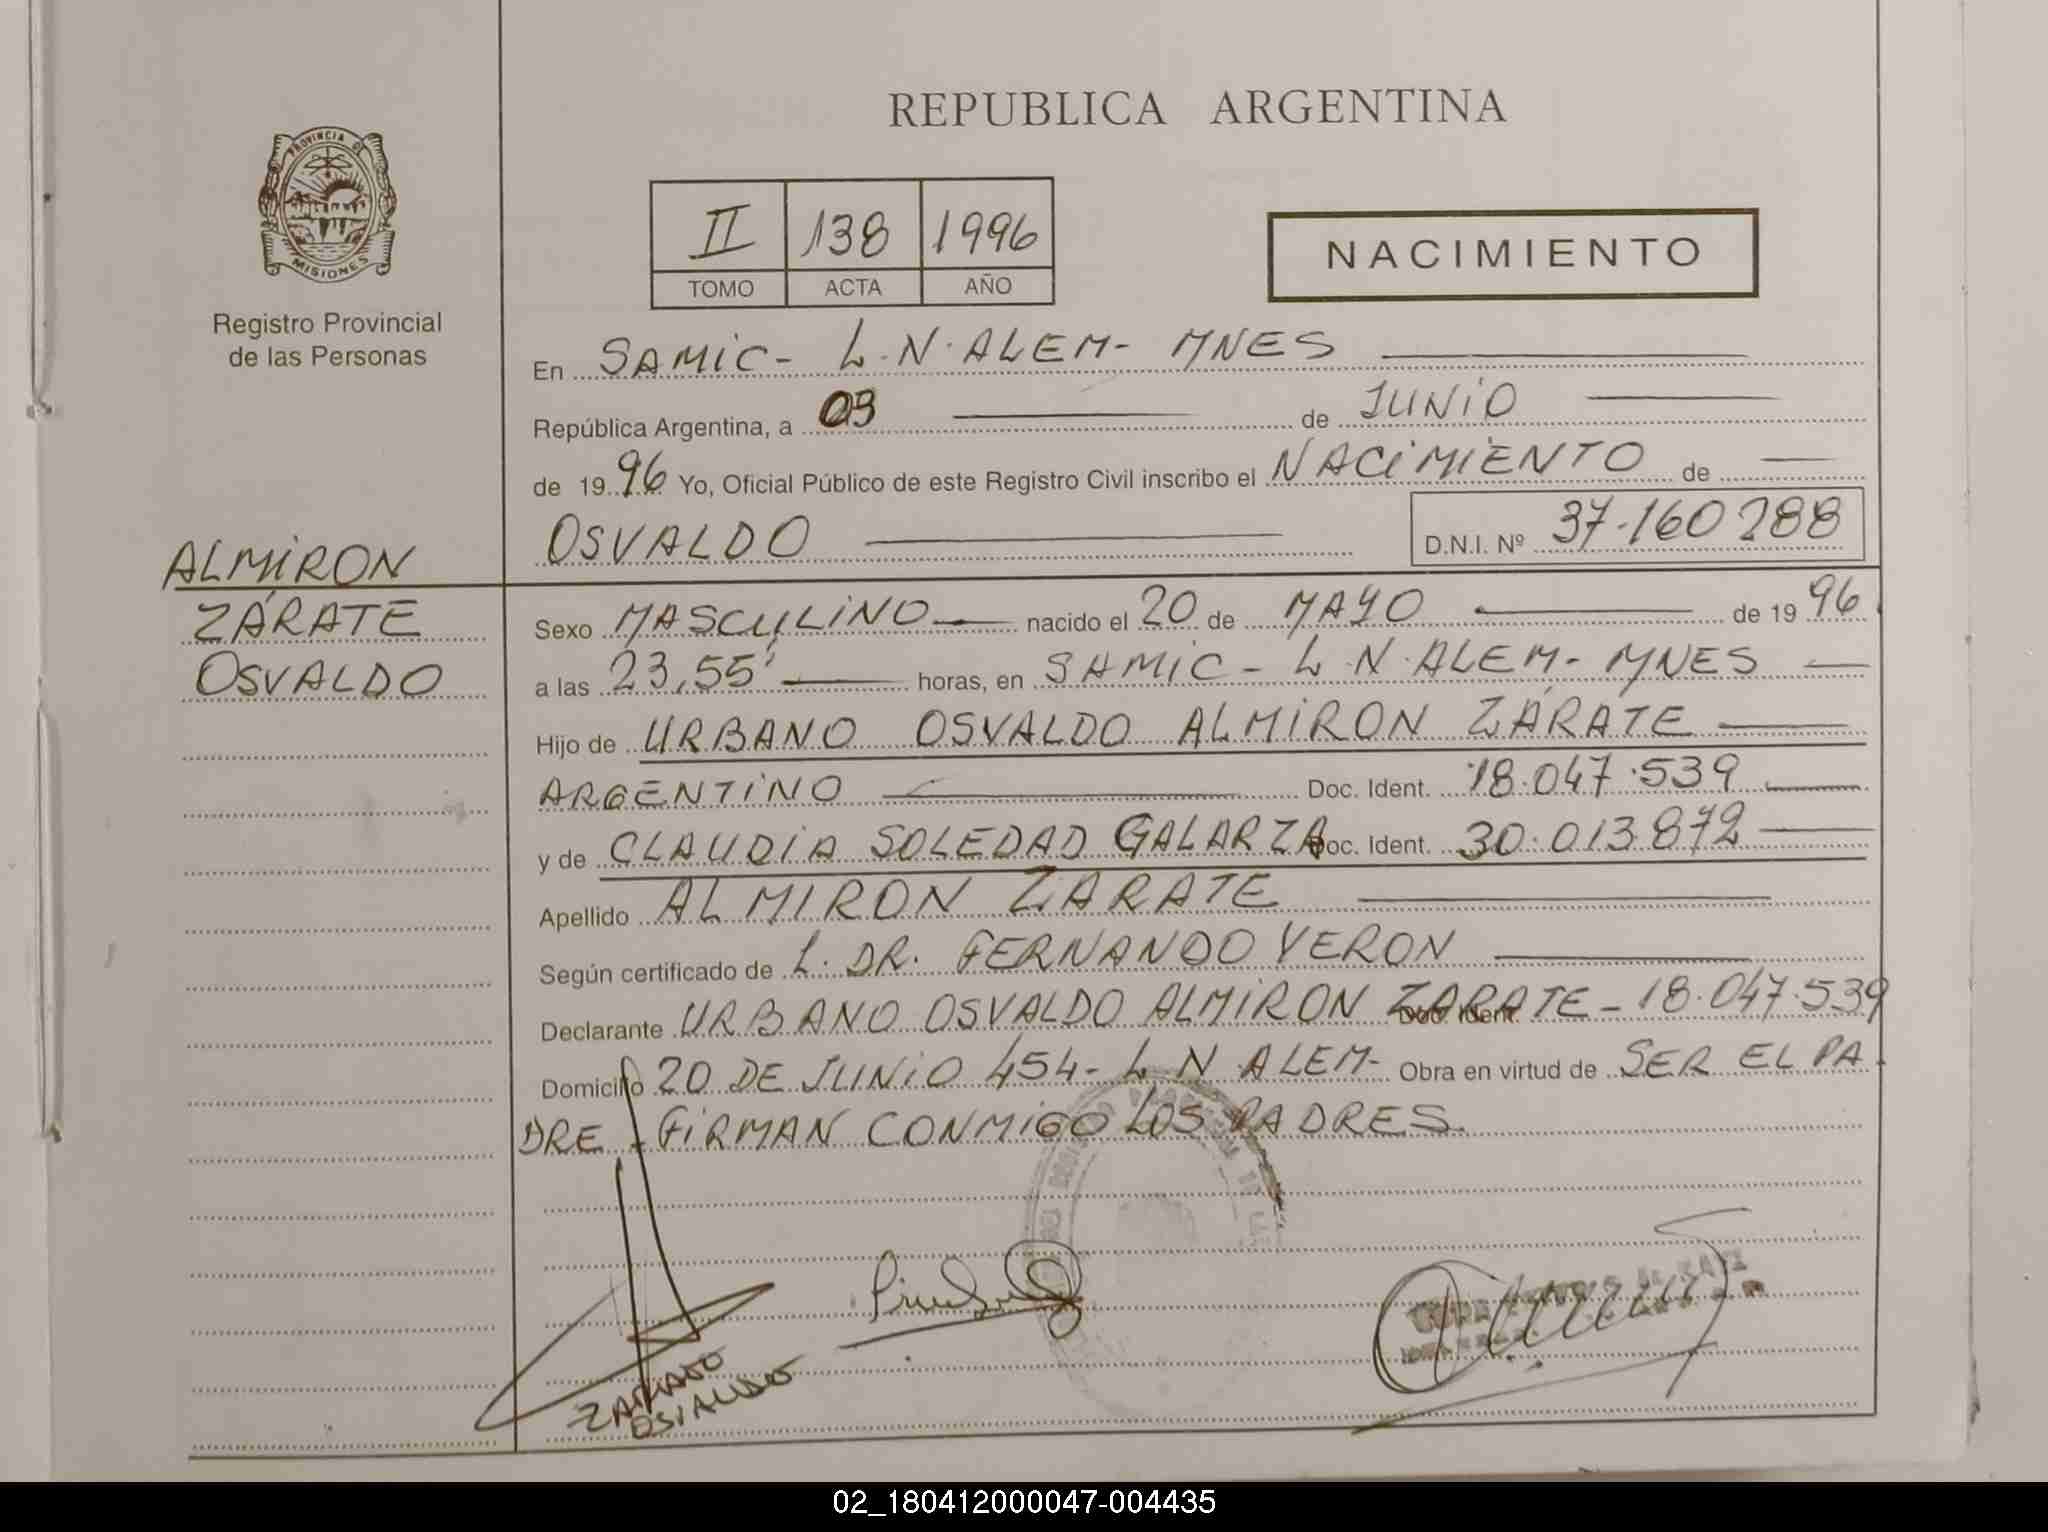 REPUBLICA ARGENTINA
PROVINCIA DE
MISIONES
Registro Provincial
de las Personas
II 138 1996
TOMO ACTA AÑO
NACIMIENTO
En SAMIC- L.N.ALEM- MNES
República Argentina, a 03 de JUNIO
de 1996 Yo, Oficial Público de este Registro Civil inscribo el NACIMIENTO de
OSVALDO D.N.I. Nº 37.160 288
ALMIRON
ZÁRATE
OSVALDO
Sexo MASCULINO nacido el 20 de MAYO de 1996
a las 23,55' horas, en SAMIC- L.N.ALEM- MNES
Hijo de URBANO OSVALDO ALMIRON ZÁRATE
ARGENTINO Doc. Ident. 18.047.539
y de CLAUDIA SOLEDAD GALARZA Doc. Ident. 30.013.872
Apellido ALMIRON ZARATE
Según certificado de L. DR. FERNANDO VERON
Declarante URBANO OSVALDO ALMIRON ZARATE - Doc. Ident. 18.047.539
Domicilio 20 DE JUNIO 454- L N ALEM- Obra en virtud de SER EL PA-
DRE - FIRMAN CONMIGO LOS PADRES.
02_180412000047-004435